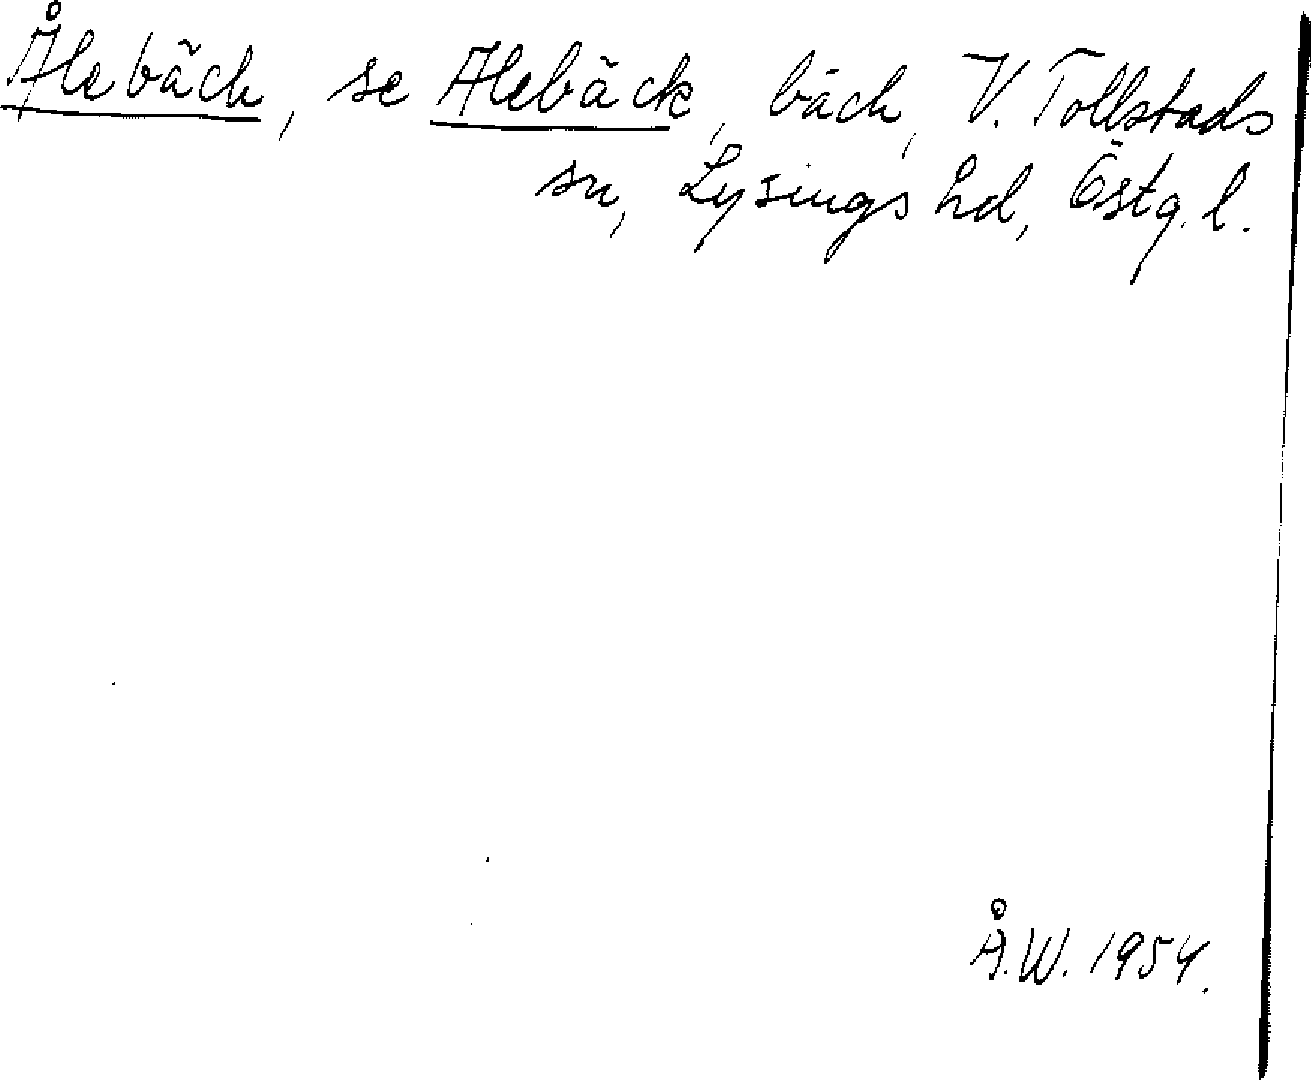 Ålebäck, se Alebäck, bäck, V. Tollstads
sn, Lysings hd, Östg. l.
Å.W. 1954.